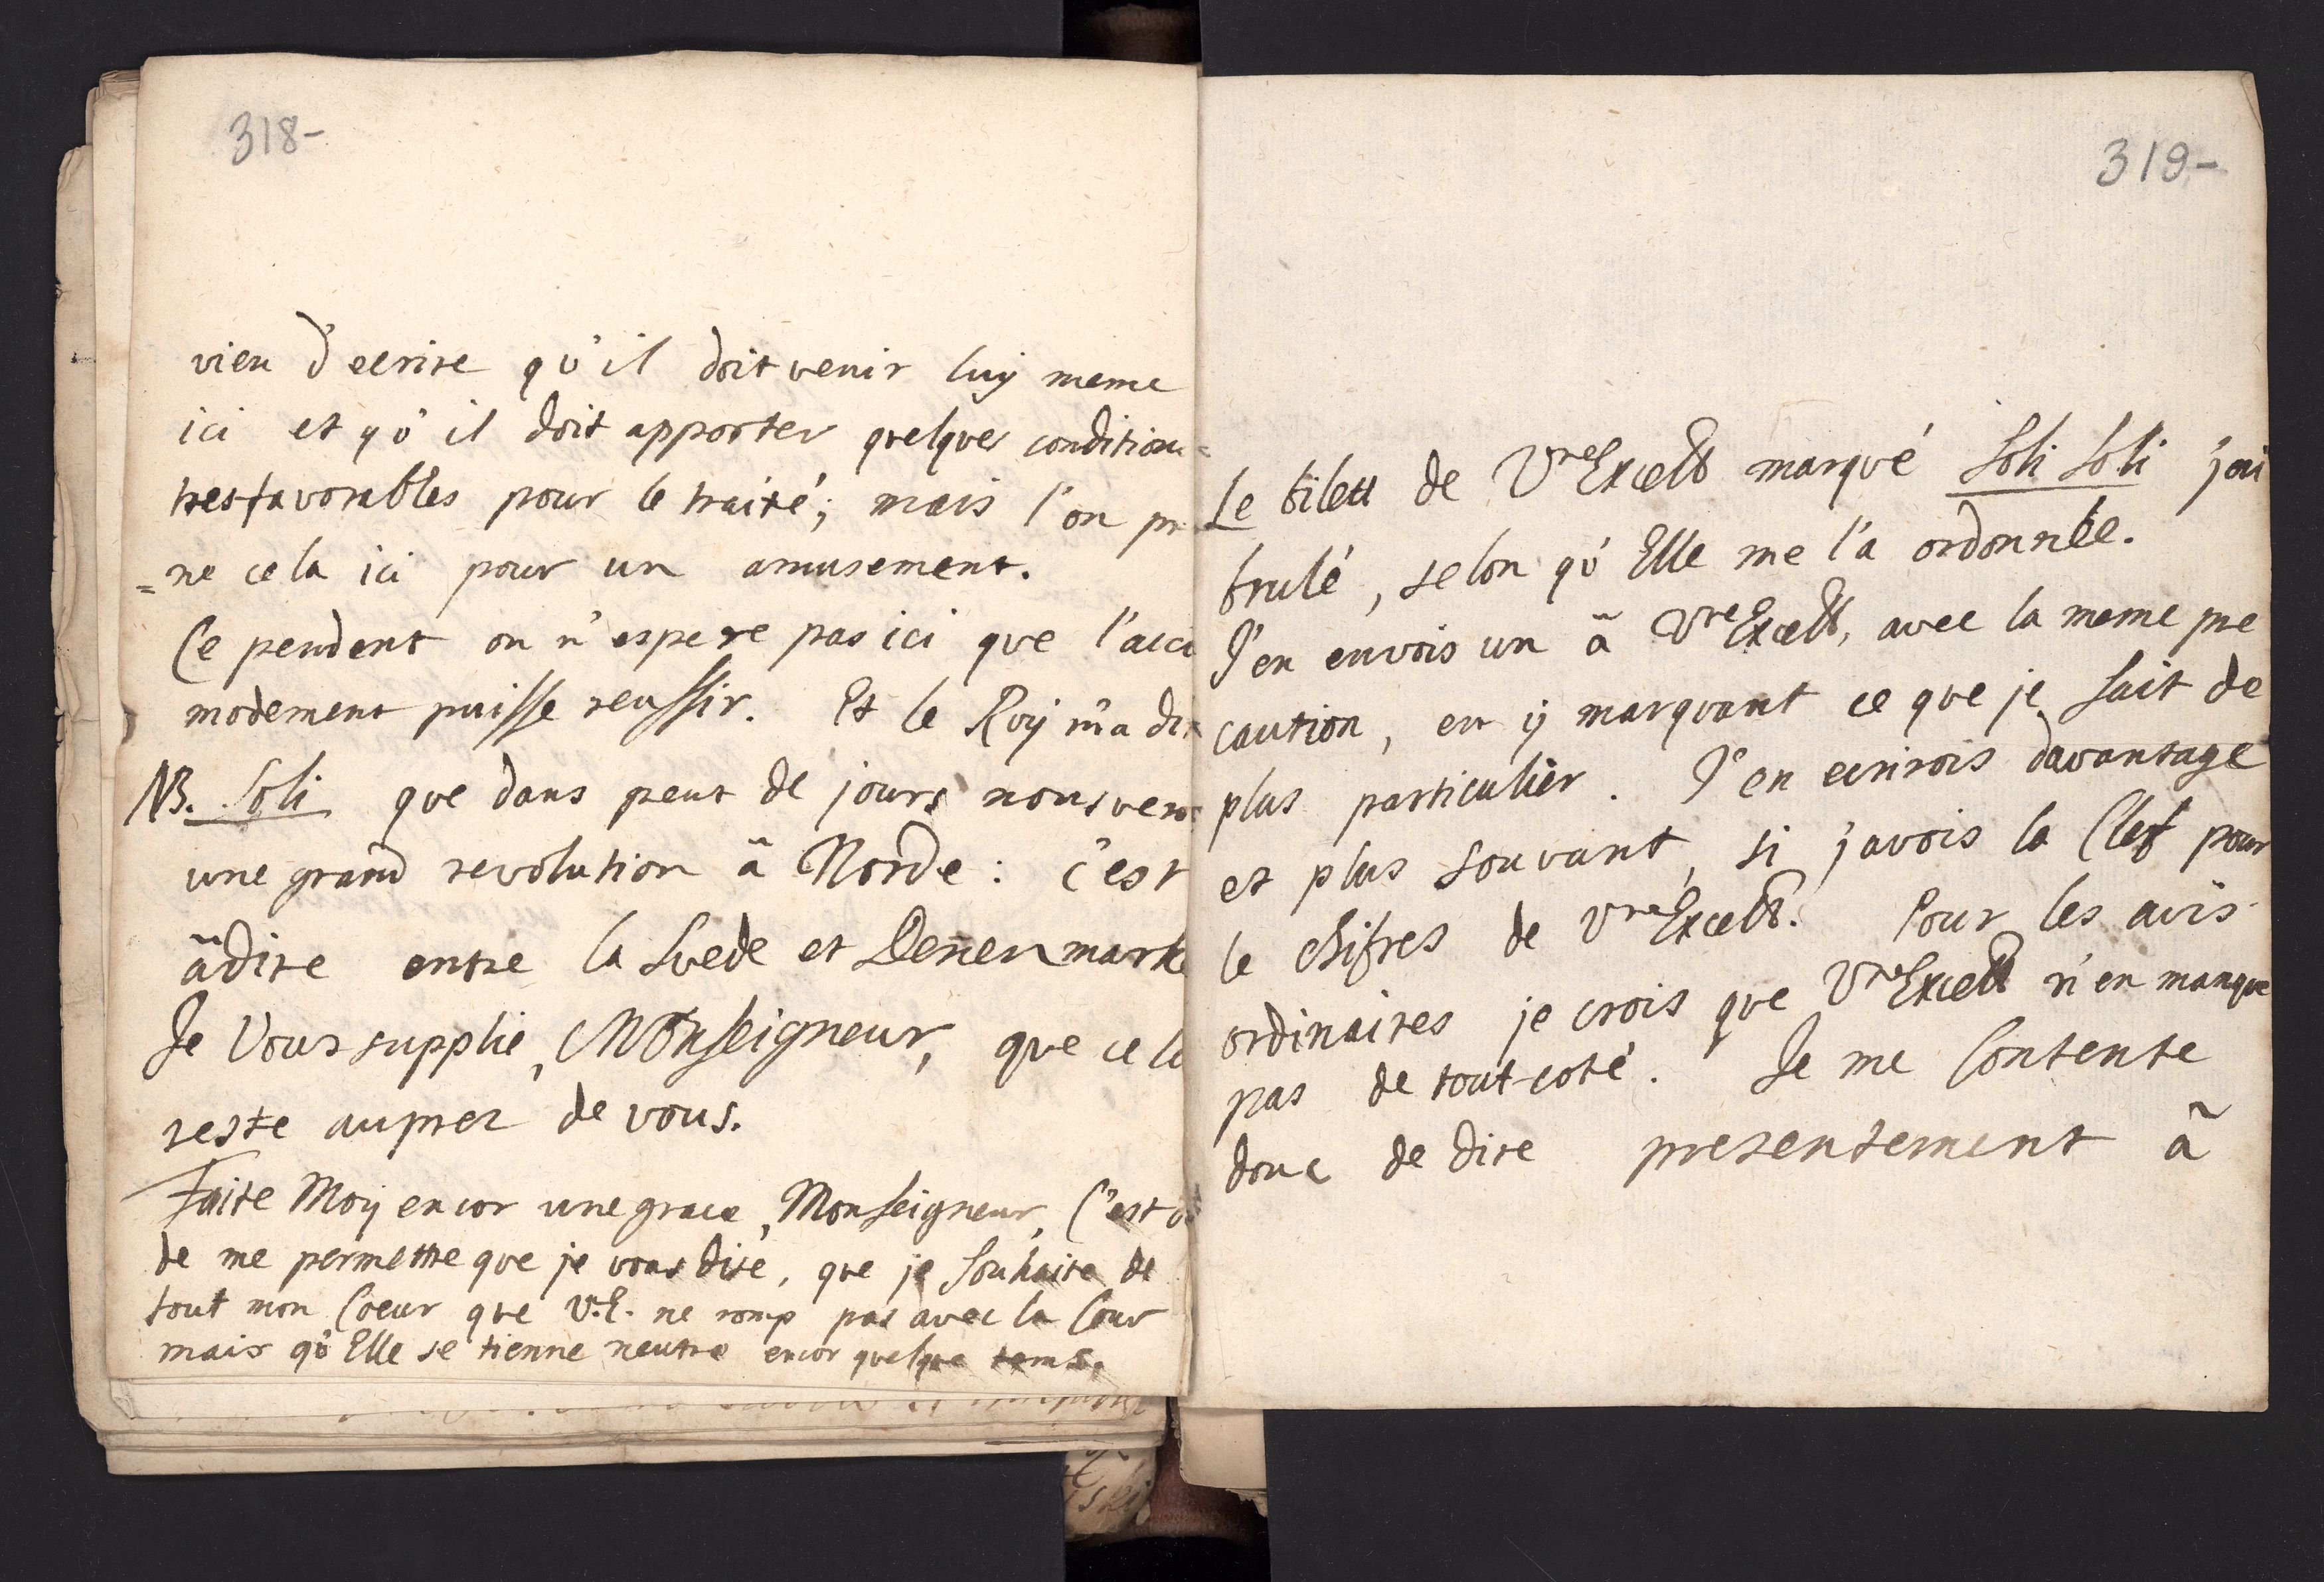 318-
vien d'ecrire qu'il doit venir luy meme
ici et qu'il doit apporter quelques condition=
tresfavorables pour le traité; mais l'on pr
=ne cela ici pour un amusement.
Ce pendent on n'espere pas ici que l'acco
modement puisse reussir. Et le Roy m'a dit
NB. Soli que dans peut de jours nous ver
une grand revolution ã Norde: c'est
ãdire entre la Svede et Deñenmarke
Je Vous supplie, Monseigneur, que cela
reste auprez de vous.
Faite Moy encor une grace, Monseigneur, C'est
de me permettre que je vous dise, que je souhaite de
tout mon Coeur que V.E. ne romp pas avec la Cour
mais qu'Elle se tienne neutre encor quelque tems.
319-
Le bilett de Vre Excell marqué Soli Soli j'ai
brulé, selon qu'Elle me l'a ordonnée.
J'en envois un ã Vre Excell, avec la meme pre
caution, en y marquant ce que je sait de
plus particulier. J'en ecrirois davantage
et plus souvant, si j'avois la Clef pour
le chifres de Vre Excell. Pour les avis
ordinaires je crois que Vre Excell n'en manque
pas de tout-coté. Je me Contente
donc de dire presentement ã